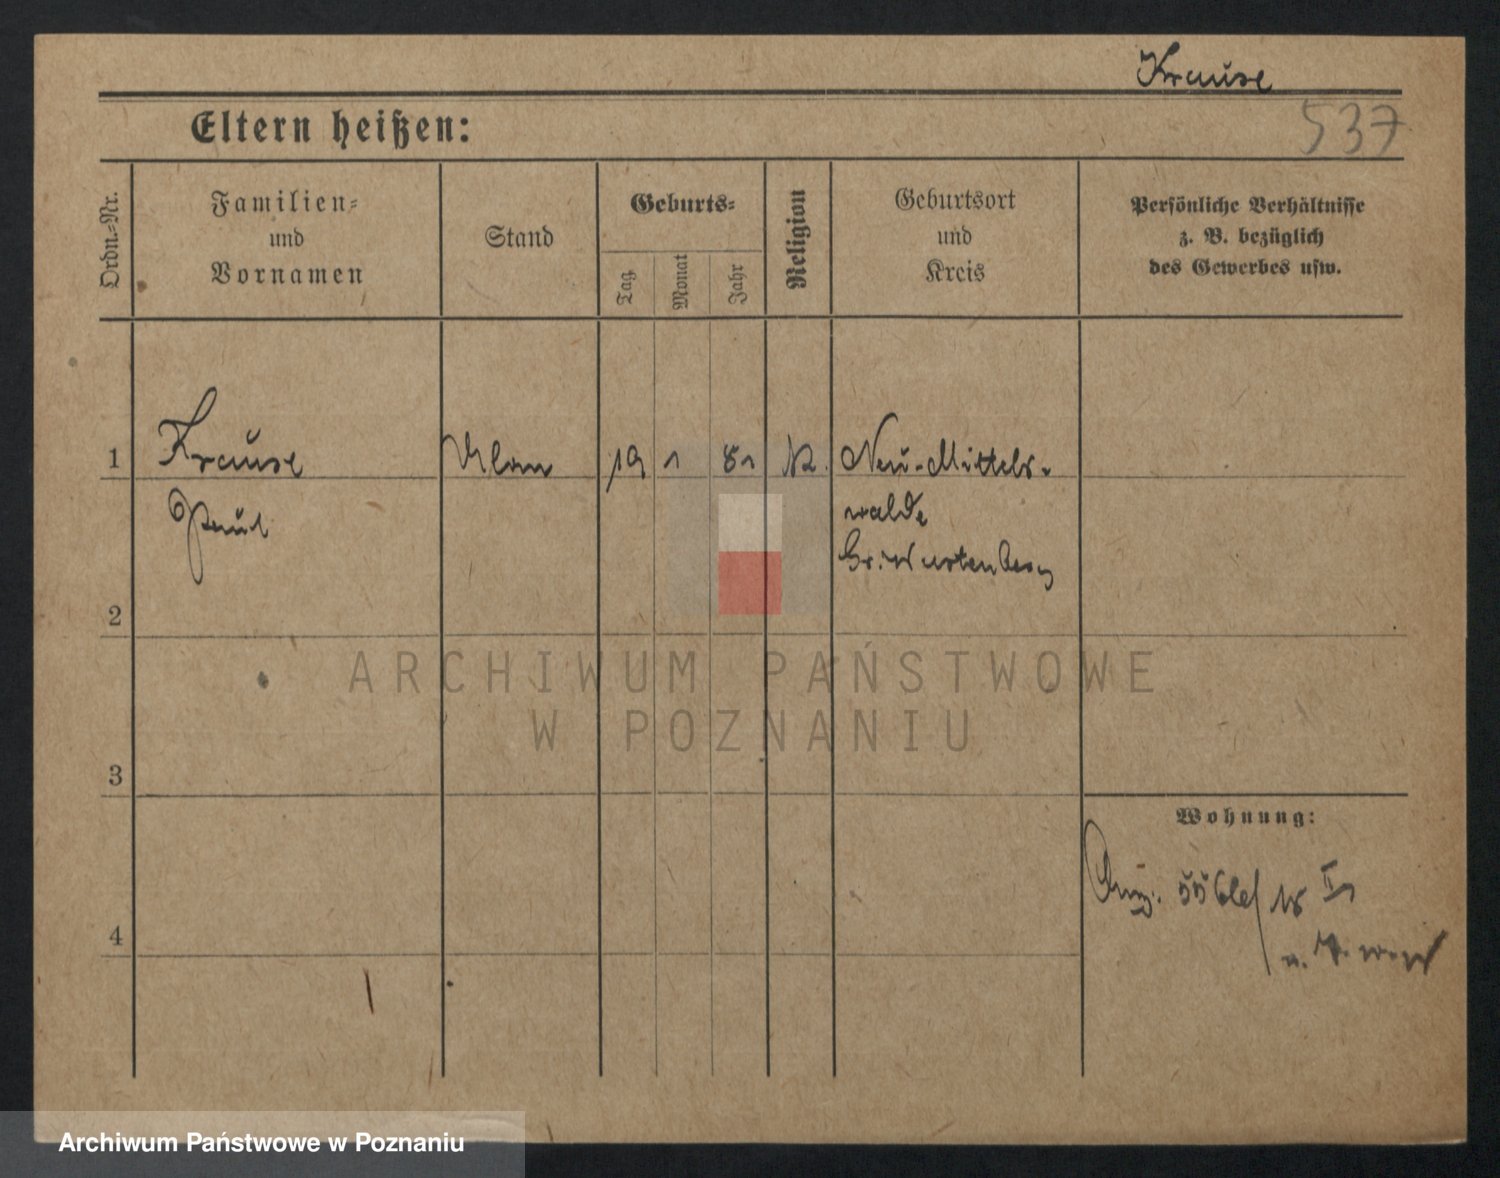 Krause
537
Eltern heißen:
Ordn.-Nr.
Familien-
und
Vornamen
Stand
Geburts-
Tag
Monat
Jahr
Religion
Geburtsort
und
Kreis
Persönliche Verhältnisse
z. B. bezüglich
des Gewerbes usw.
1 Krause Ulan 19 1 81 Neu-Mittels-
Paul walde
Gr. Wartenberg
2
3
4
Wohnung:
ARCHIWUM PAŃSTWOWE
W POZNANIU
Archiwum Państwowe w Poznaniu